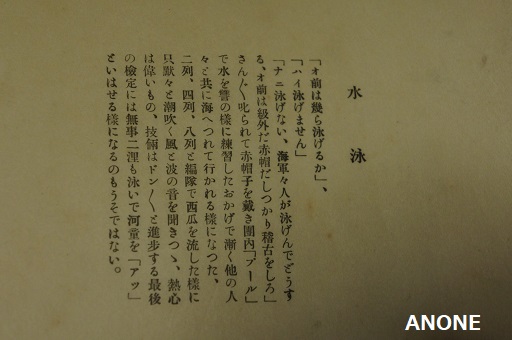 水泳
「オ前は幾ら泳げるか」、
「ハイ泳げません」
「ナニ泳げない、海軍々人が泳げんでどうす
る、オ前は級外だ赤帽だしつかり稽古をしろ」
さん〴〵叱られて赤帽子を戴き團内「プール」
で水を讐の樣に練習したおかげで漸く他の人
々と共に海へつれて行かれる樣になつた、
二列、四列、八列と編隊で西瓜を流した樣に
只默々と潮吹く風と波の音を聞きつゝ、熱心
は偉いもの、技倆はドン〳〵と進歩する最後
の檢定には無事二浬も泳いで河童を「アッ」
といはせる樣になるのもうそではない。
ANONE